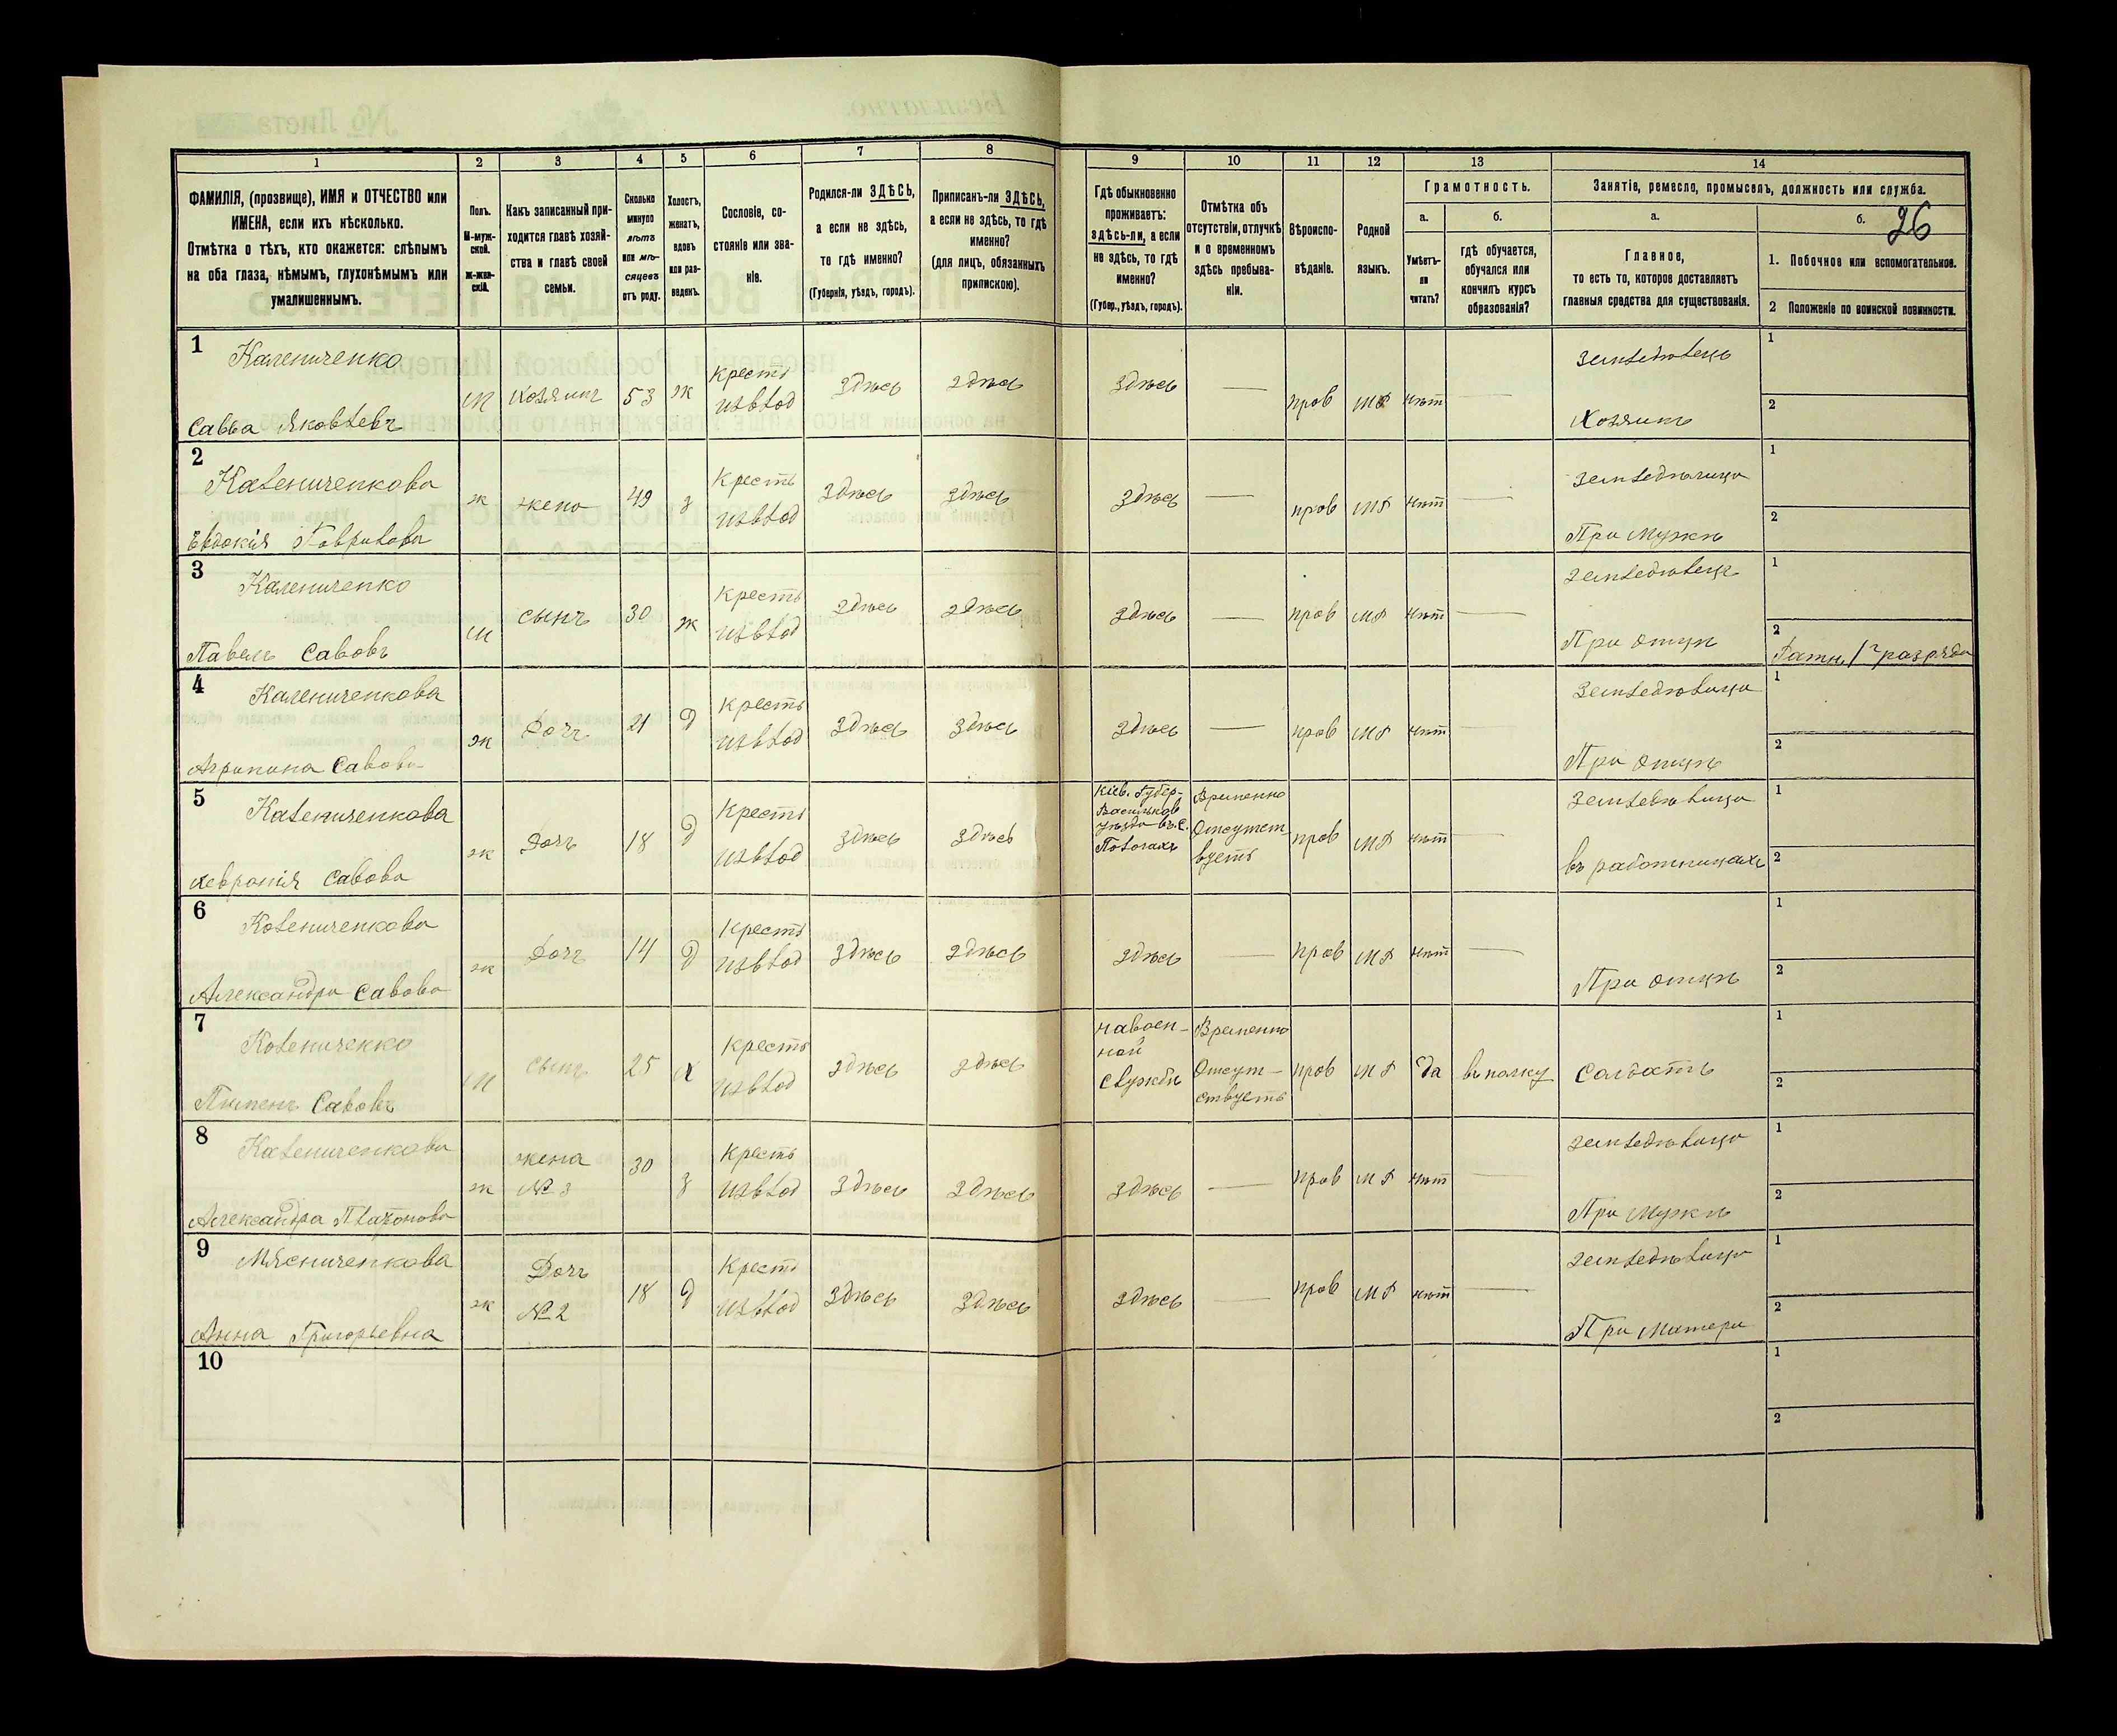 26
1
2
3
4
5
6
7
8
9
10
11
12
13
14
ФАМИЛІЯ, (прозвище), ИМЯ и ОТЧЕСТВО или
ИМЕНА, если ихъ нѣсколько.
Отмѣтка о тѣхъ, кто окажется: слѣпымъ
на оба глаза, нѣмымъ, глухонѣмымъ или
умалишеннымъ.
Полъ.
М-муж-
ской.
Ж-жен-
скій.
Какъ записанный при-
ходится главѣ хозяй-
ства и главѣ своей
семьи.
Сколько
минуло
лѣтъ
или мѣ-
сяцевъ
отъ роду.
Холостъ,
женатъ,
вдовъ
или раз-
веденъ.
Сословіе, со-
стояніе или зва-
ніе.
Родился-ли ЗДѢСЬ,
а если не здѣсь,
то гдѣ именно?
(Губернія, уѣздъ, городъ).
Приписанъ-ли ЗДѢСЬ,
а если не здѣсь, то гдѣ
именно?
(для лицъ, обязанныхъ
припискою).
Гдѣ обыкновенно
проживаетъ:
здѣсь-ли, а если
не здѣсь, то гдѣ
именно?
(Губер., уѣздъ, городъ).
Отмѣтка объ
отсутствіи, отлучкѣ
и о временномъ
здѣсь пребыва-
ніи.
Вѣроиспо-
вѣданіе.
Родной
языкъ.
Грамотность.
а.
Умѣетъ-
ли
читать?
б.
гдѣ обучается,
обучался или
кончилъ курсъ
образованія?
Занятіе, ремесло, промыселъ, должность или служба.
а.
Главное,
то есть то, которое доставляетъ
главныя средства для существованія.
б.
1. Побочное или вспомогательное.
2 Положеніе по воинской повинности.
1
Калениченко
Савва Яковлевъ
м
хозяинъ
53
ж
крестъ
изъ влад
здѣсь
здѣсь
здѣсь
—
прав
мр
нѣт
—
земледѣлецъ
Хозяинъ
1
2
2
Калениченкова
Евдокія Гаврилова
ж
жена
49
з
крестъ
изъ влад
здѣсь
здѣсь
здѣсь
—
прав
мр
нѣт
—
земледѣлица
При мужѣ
1
2
3
Калениченко
Павелъ Савовъ
м
сынъ
30
ж
крестъ
изъ влад
здѣсь
здѣсь
здѣсь
—
прав
мр
нѣт
—
земледѣлецъ
При отцѣ
1
2
Ратн. 1го разряда
4
Калениченкова
Агрипина Савова
ж
дочъ
21
д
крестъ
изъ влад
здѣсь
здѣсь
здѣсь
—
прав
мр
нѣт
—
земледѣлица
При отцѣ
1
2
5
Калениченкова
Хевронія Савова
ж
дочъ
18
д
крестъ
изъ влад
здѣсь
здѣсь
Кіев. Губер-
Васильков
уѣзда въ с.
Пологахъ
Временно
Отсутст
вуетъ
прав
мр
нѣт
—
земледѣлица
въ работницахъ
1
2
6
Калениченкова
Александра Савова
ж
дочъ
14
д
крестъ
изъ влад
здѣсь
здѣсь
здѣсь
—
прав
мр
нѣт
—
При отцѣ
1
2
7
Калениченко
Пименъ Савовъ
м
сынъ
25
х
крестъ
изъ влад
здѣсь
здѣсь
на воен-
ной
службѣ
Временно
Отсут-
ствуетъ
прав
мр
да
въ полку
Солдатъ
1
2
8
Калениченкова
Александра Платонова
ж
жена
№ 3
30
з
крестъ
изъ влад
здѣсь
здѣсь
здѣсь
—
прав
мр
нѣт
—
земледѣлица
При мужѣ
1
2
9
Мясниченкова
Анна Григорьевна
ж
Дочъ
№ 2
18
д
крестъ
изъ влад
здѣсь
здѣсь
здѣсь
—
прав
мр
нѣт
—
земледѣлица
При матери
1
2
10
1
2